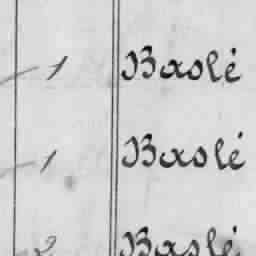 1 Baslé
1 Baslé
2 Baslé